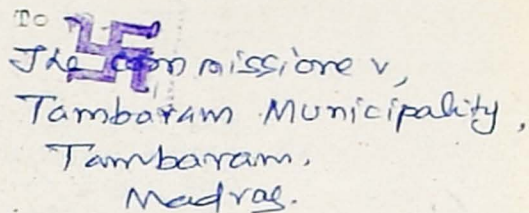 To
The Commissioner,
Tambaram Municipality,
Tambaram,
Madras.